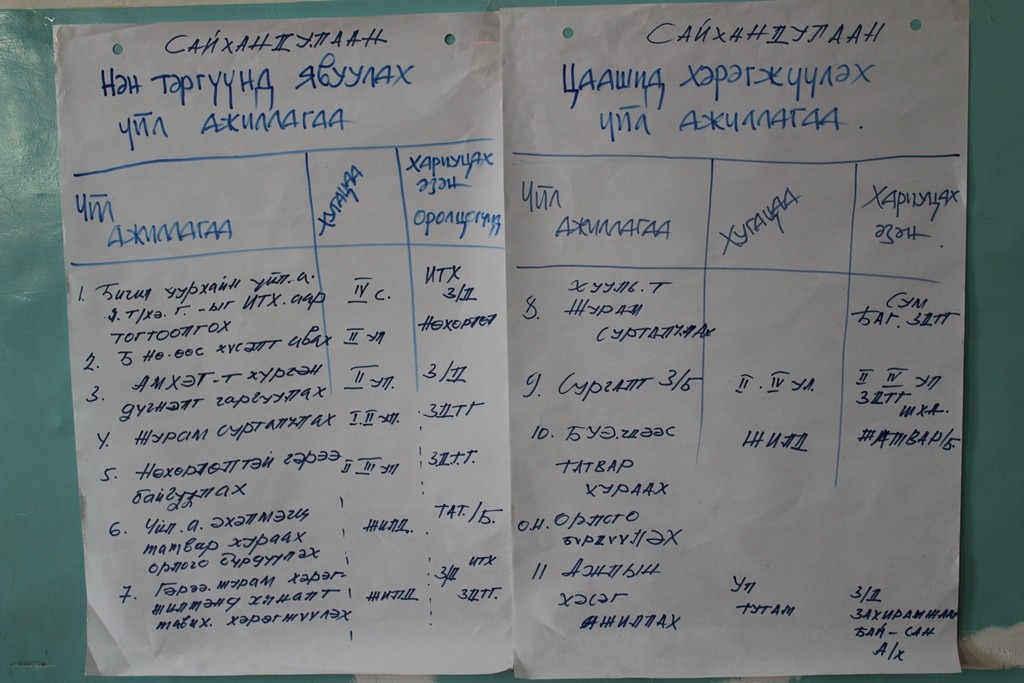 САЙХАНДУЛААН
Нэн тэргүүнд явуулах
үйл ажиллагаа
Үйл
ажиллагаа
Хугацаа
Хариуцах
эзэн
оролцогчид
1. Бичил уурхайн үйл.а.
т/хэ. Г.-ыг ИТХ.аар
тогтоолгох
IV с.
ИТХ
З/Д
2. Б нө.өөс хүсэлт авах
II ул
нөхөрлөл
3. АМХЭГ-т хүргэн
дүгнэлт гаргуулах
II ул.
З/Д
4. Журам сурталчлах
I.II ул.
ЗДТГ
5. Нөхөрлөлтэй гэрээ
байгуулах
II III ул
ЗДТГ.
6. Үйл.а. эхэлмэгц
татвар хураах
орлого бүрдүүлэх
жилд.
тат./б.
7. Гэрээ.журам хэрэг-
жилтэнд хяналт
тавих. хэрэгжүүлэх
жилд
З/Д ИТХ
ЗДТГ.
САЙХАНДУЛААН
Цаашид хэрэгжүүлэх
үйл ажиллагаа.
Үйл
ажиллагаа
Хугацаа
Хариуцах
эзэн.
8. Хууль.т
журам
сурталчлах
сум
баг. ЗДТГ
9. Сургалт З/Б
II . IV ул.
II IV ул
ЗДТГ
ШХА.
10. БҮЭ.гдээс
татвар
хураах
жилд
татвар/б.
Орлого
бүрдүүлэх
11 Ажлын
хэсэг
ажиллах
Ул
тутам
З/Д
захирамжлал
бай-сан
А/х